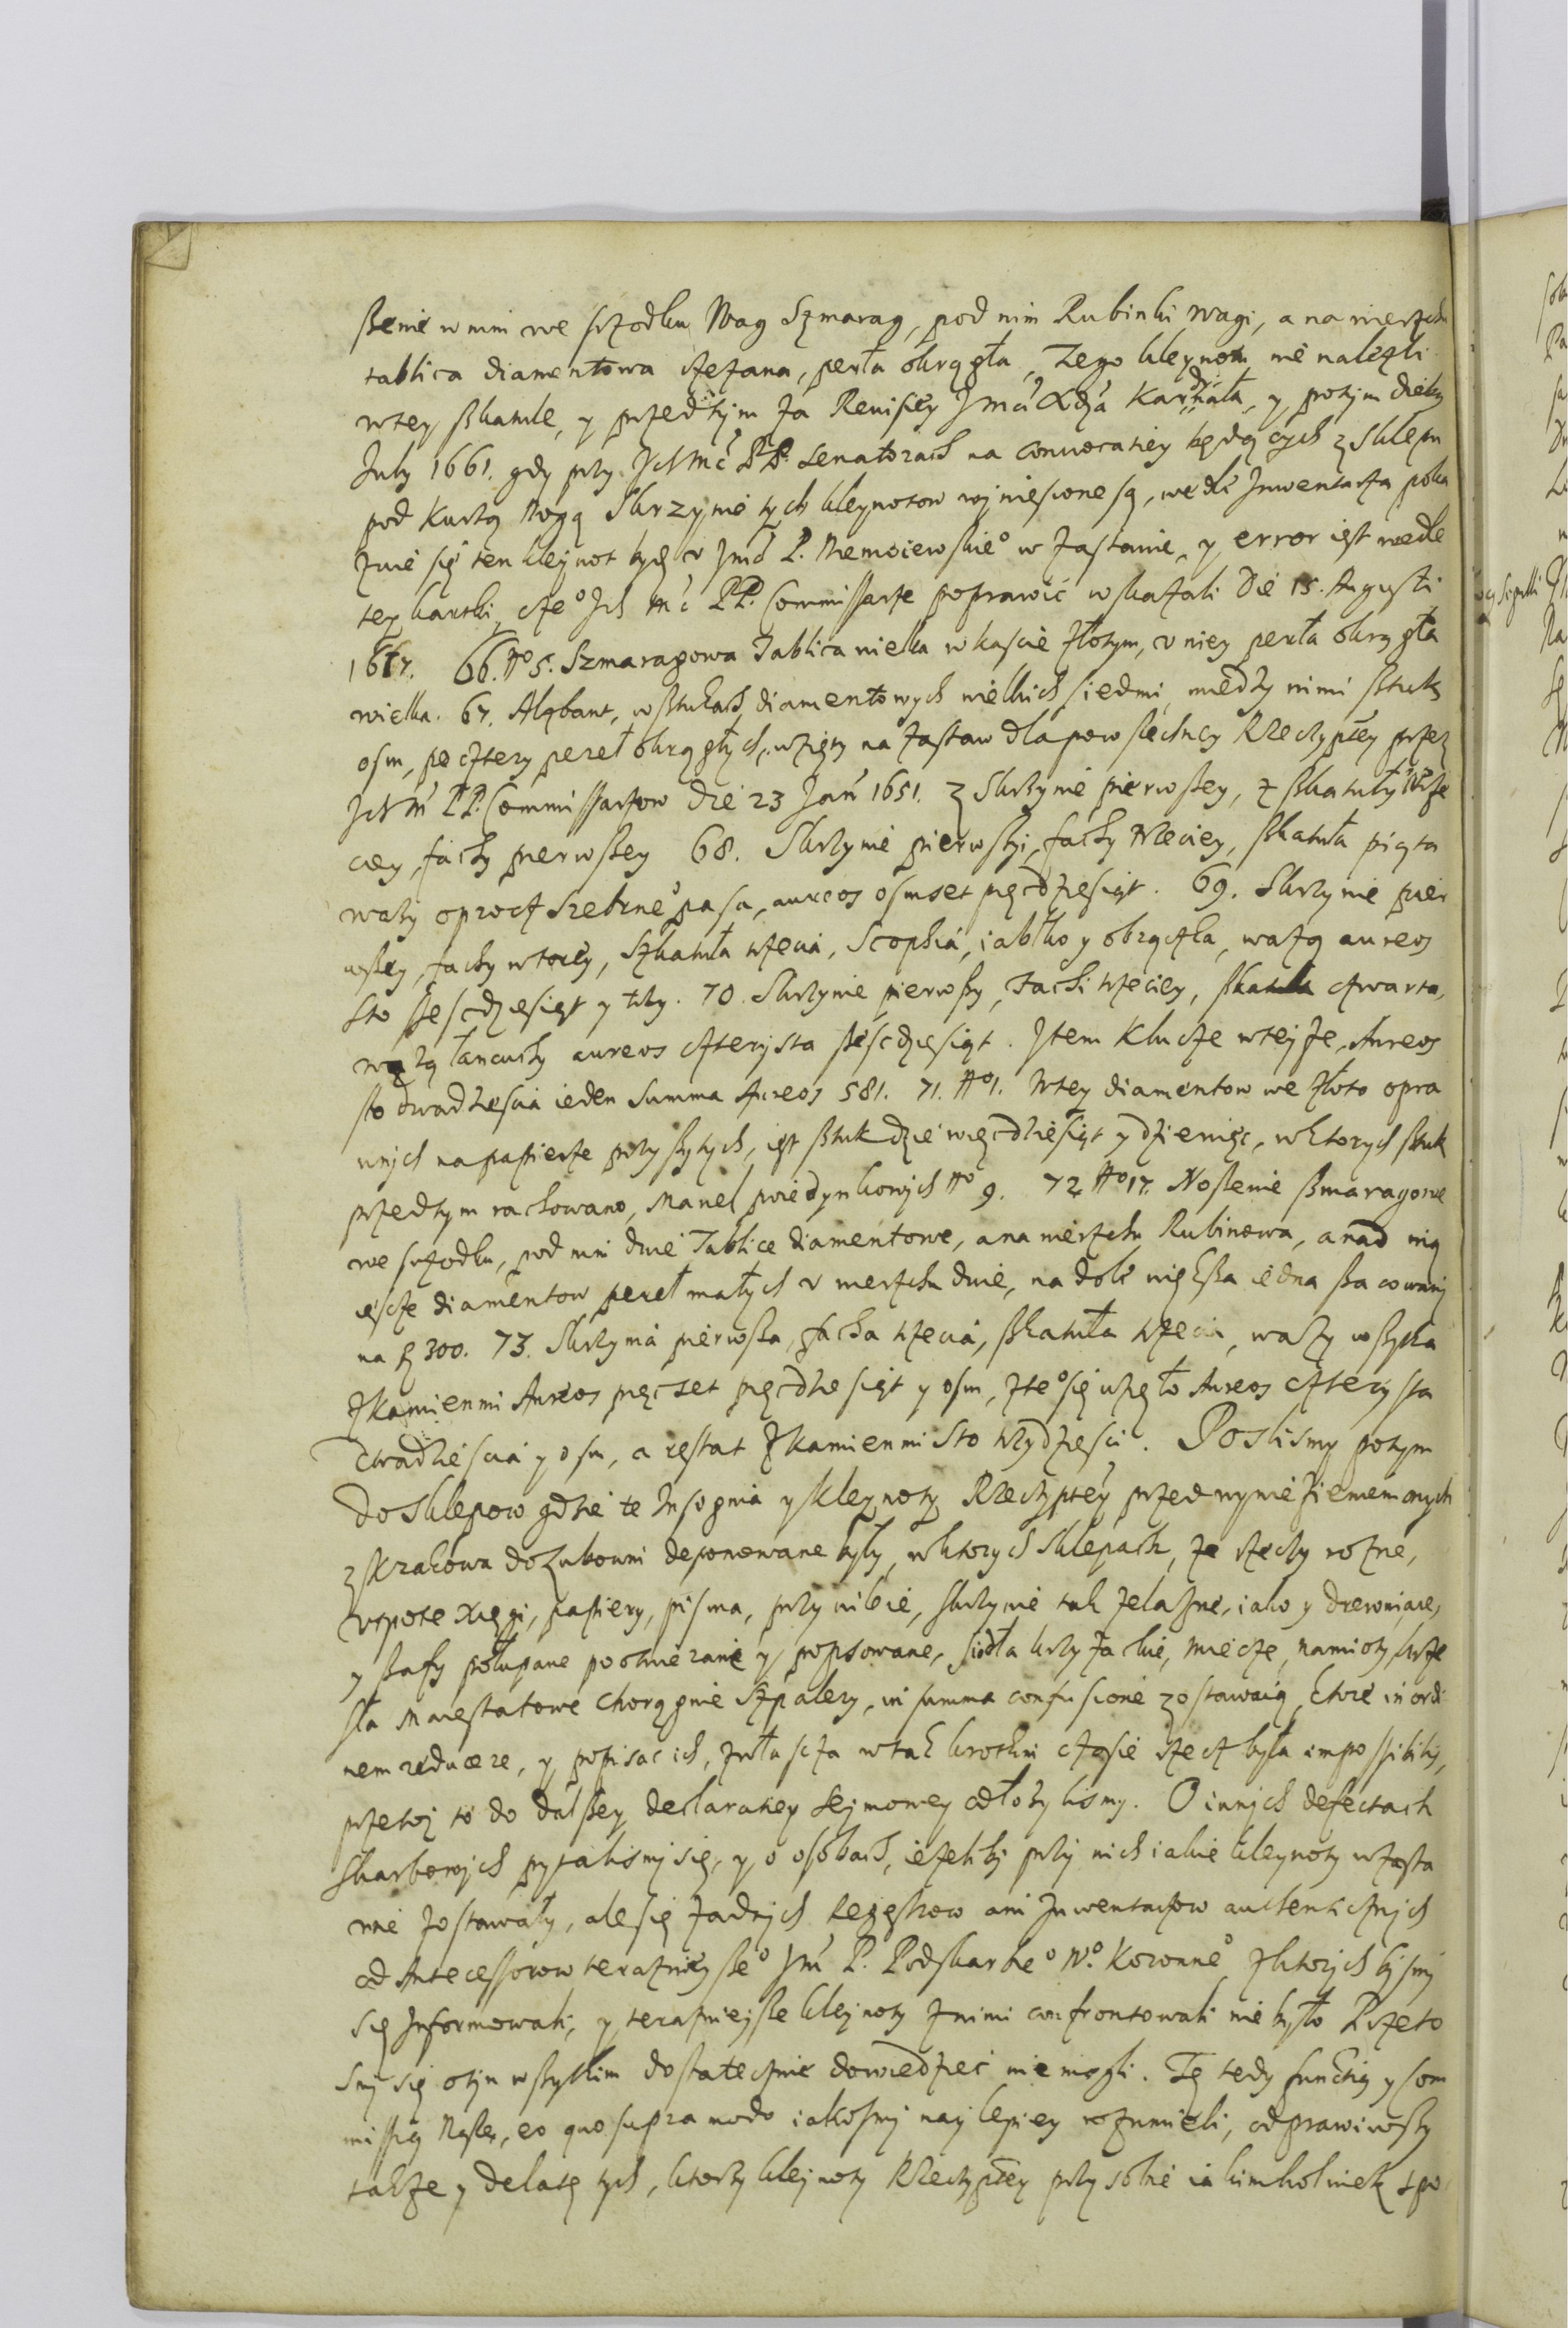 ßenie w nim we srzodku Wag Szmarag, pod nim Rubinki wagi, a na wierzchu
tablica diamentowa rzezana, perła okrągła, Tego kleynotu nie nalezli
w tey szkatule, y przed tym za Rewisiey Jmci Xdza Kardnała, y potym die
July 1661. gdy przy Ich Mć PP. Senatorach na convocatiey będących z Sklepu
pod Kurzą Nogą Skrzynie tych kleynotow wyniesione są, wedle Inwentarza poka
zuie się ten kleynot byd v Jmć P. Niemoiewskie° w zastawie, y error iest wedle
tey kartki, cze° Ich Mć PP. Commissarze poprawić wskazali Die 15. Augusti
1667. 66. N° 5. Szmaragowa Tablica wielka w kascie złotym, v niey perła okrągła
wielka. 67. Alzbant, w sztukach diamentowych wielkich siedmi, między nimi sztuk
osm, po cztery pereł okrągłych, wzięty na zastaw dla powszechney Rzeczyptey przez
Ich M PP. Commissarzow die 23 Jan 1651. z Skrzynie pierwszey, z szkatuły trze
ciey, fachy pierwszey 68. Skrzynie pierwszyi, fachy trzeciey, szkatuła piąta
wazy oprocz srebrne° pasa, aureos osmset pięcdziesiąt. 69. Skrzynie pier
wszey, fachy wtorey, Szkatuła trzecia, Scophia, iabłko y obrączka, wazą aureos
sto sześcdziesiąt y trzy. 70. Skrzynie pierwszy, fachi trzeciey, szkatuła czwarta,
wazą łancuchy aureos czterysta sześcdziesiąt. Item Klucze w teyze, Aureos
sto dwadziescia ieden Summa Aureos 581. 71. N° 1. W tey diamentow we złoto opra
wnych na papierze przyszytych, iest sztuk dziewięcdziesiąt y dziewięc, w ktorych sztuk
przed tym rachowano, Manel poiedynkowych N° 9. 72 N° 17. Noszenie szmaragowe
we srzodku, pod nim dwie Tablice diamentowe, a na wierzchu Rubinowa, a nad nią
iescze diamentow pereł małych v wierzchu dwie, na dole większa iedna szacowany
na f 300. 73. Skrzynia pierwsza, facha trzecia, szkatuła trzecia, wazy wszytka
z kamienmi Aureos pięcset pięcdziesiąt y osm, z te° się wzięło Aureos czterysta
dwadziescia y osm, a restat z kamienmi sto trzydziesci. Poszlismy potym
do sklepow gdzie te Insygnia y kleynoty Rzeczyptey przed wyniezieniem onych
z Krakowa do Lubowni deponowane były, w ktorych sklepach, ze rzeczy rozne,
vtpote xięgi, papiery, pisma, przywileie, skrzynie tak zelazne, iako y drewniane,
y szafy połupane pootwierane y popsowane, siodła krzyzackie, miecze, namioty, krze
sła Maiestatowe chorągwie Szpalery, in summa confusione zostawaią, ktore in ordi
nem reducere, y popisac ich, zwłascza w tak krotkim czasie rzecz była impossibilis,
przetoz to do dalszey declaratiey Seymowey odłozylismy. O innych defectach
skarbowych pytalismy się, y o osobach, iezeliby przy nich iakie kleynoty w zasta
wie zostawały, ale się zadnych Regestrow ani Inwentarzow authenticznych
od Antecessorow teraznieysze° Jm P. Podskarbe° W° Koronne° z ktorych bysmy
się Informowali, y teraznieysze kleynoty z nimi confrontowali nie było Przeto
smy się o tym wszytkim dostatecznie dowiedziec nie mogli. Tę tedy functią y Com
missią Naszę, eo quo supra modo iakosmy naylepiey rozumieli, odprawiwszy
takze y delatę tych, ktorzy kleynoty Rzeczyptey przy sobie iakimkolwiek spo